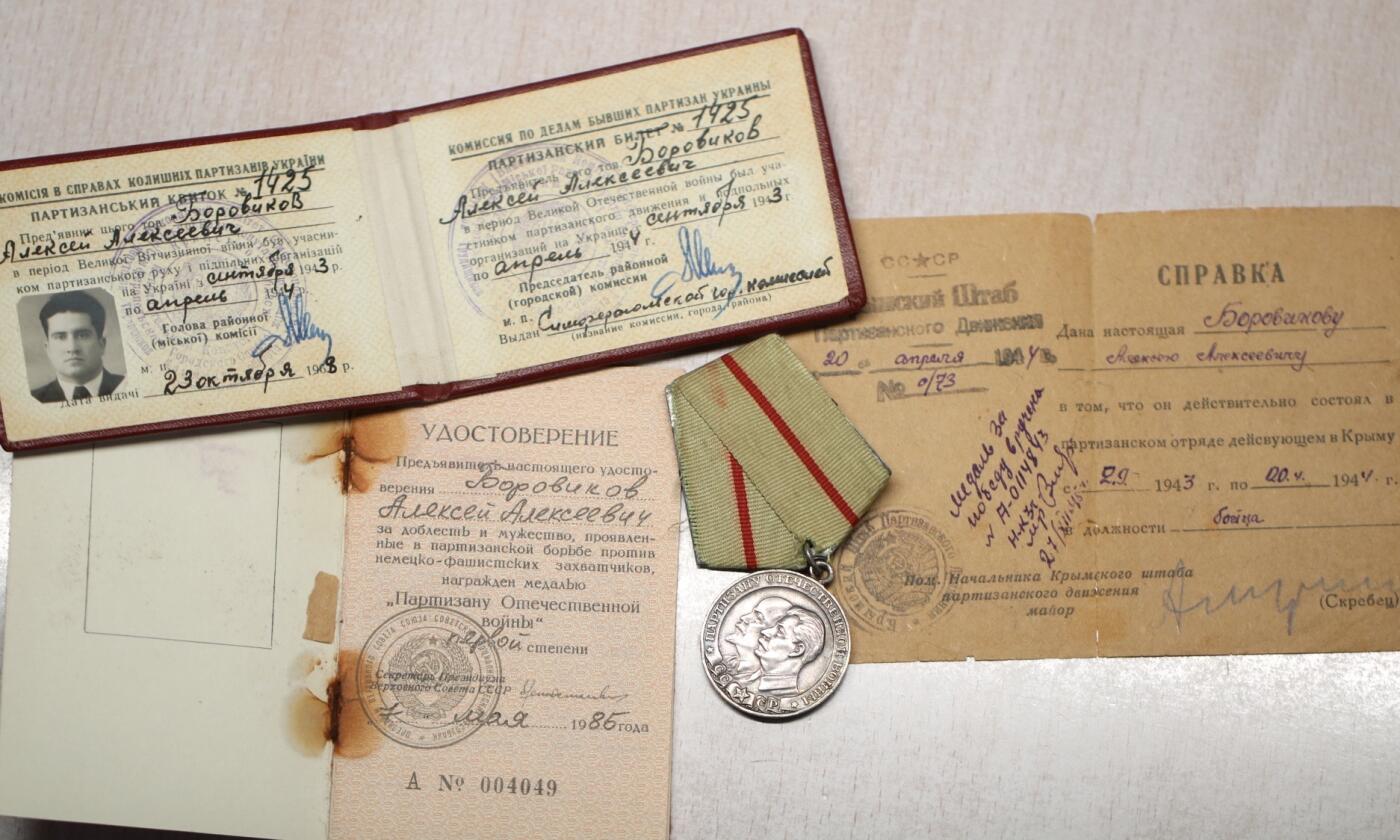 КОМІСІЯ В СПРАВАХ КОЛИШНІХ ПАРТИЗАНІВ УКРАЇНИ
ПАРТИЗАНСЬКИЙ КВИТОК № 1425
Пред'явник цього тов. Боровиков
Алексей Алексеевич
в період Великої Вітчизняної війни був учасни-
ком партизанського руху і підпільних організацій
на Україні з сентября 1943 р.
по апрель 1944 р.
Голова районної
(міської) комісії
м. п.
Дата видачі 23 октября 1968 р.
КОМИССИЯ ПО ДЕЛАМ БЫВШИХ ПАРТИЗАН УКРАИНЫ
ПАРТИЗАНСКИЙ БИЛЕТ № 1425
Предъявитель сего тов. Боровиков
Алексей Алексеевич
в период Великой Отечественной войны был уча-
стником партизанского движения и подпольных
организаций на Украине с сентября 1943 г
по апрель 1944 г.
Председатель районной
(городской) комиссии
м. п.
Выдан Симферопольской гор. комиссией
(название комиссии, города, района)
УДОСТОВЕРЕНИЕ
Предъявитель настоящего удосто-
верения Боровиков
Алексей Алексеевич
за доблесть и мужество, проявлен-
ные в партизанской борьбе против
немецко-фашистских захватчиков,
награжден медалью
„Партизану Отечественной
войны“
первой степени
Секретарь Президиума
Верховного Совета СССР
мая 1985 года
А № 004049
ПАРТИЗАНУ ОТЕЧЕСТВЕННОЙ ВОЙНЫ
СС★СР
СС★СР
Штаб
Партизанского Движения
20 апреля 1944 г.
№ с/73
медаль за
победу вручена
N А-0114843
СПРАВКА
Дана настоящая Боровикову
Алексею Алексеевичу
в том, что он действительно состоял в
партизанском отряде действующем в Крыму
с 29 1943 г. по 20.4. 1944 г.
в должности бойца
Пом. Начальника Крымского штаба
партизанского движения
майор
(Скребец)